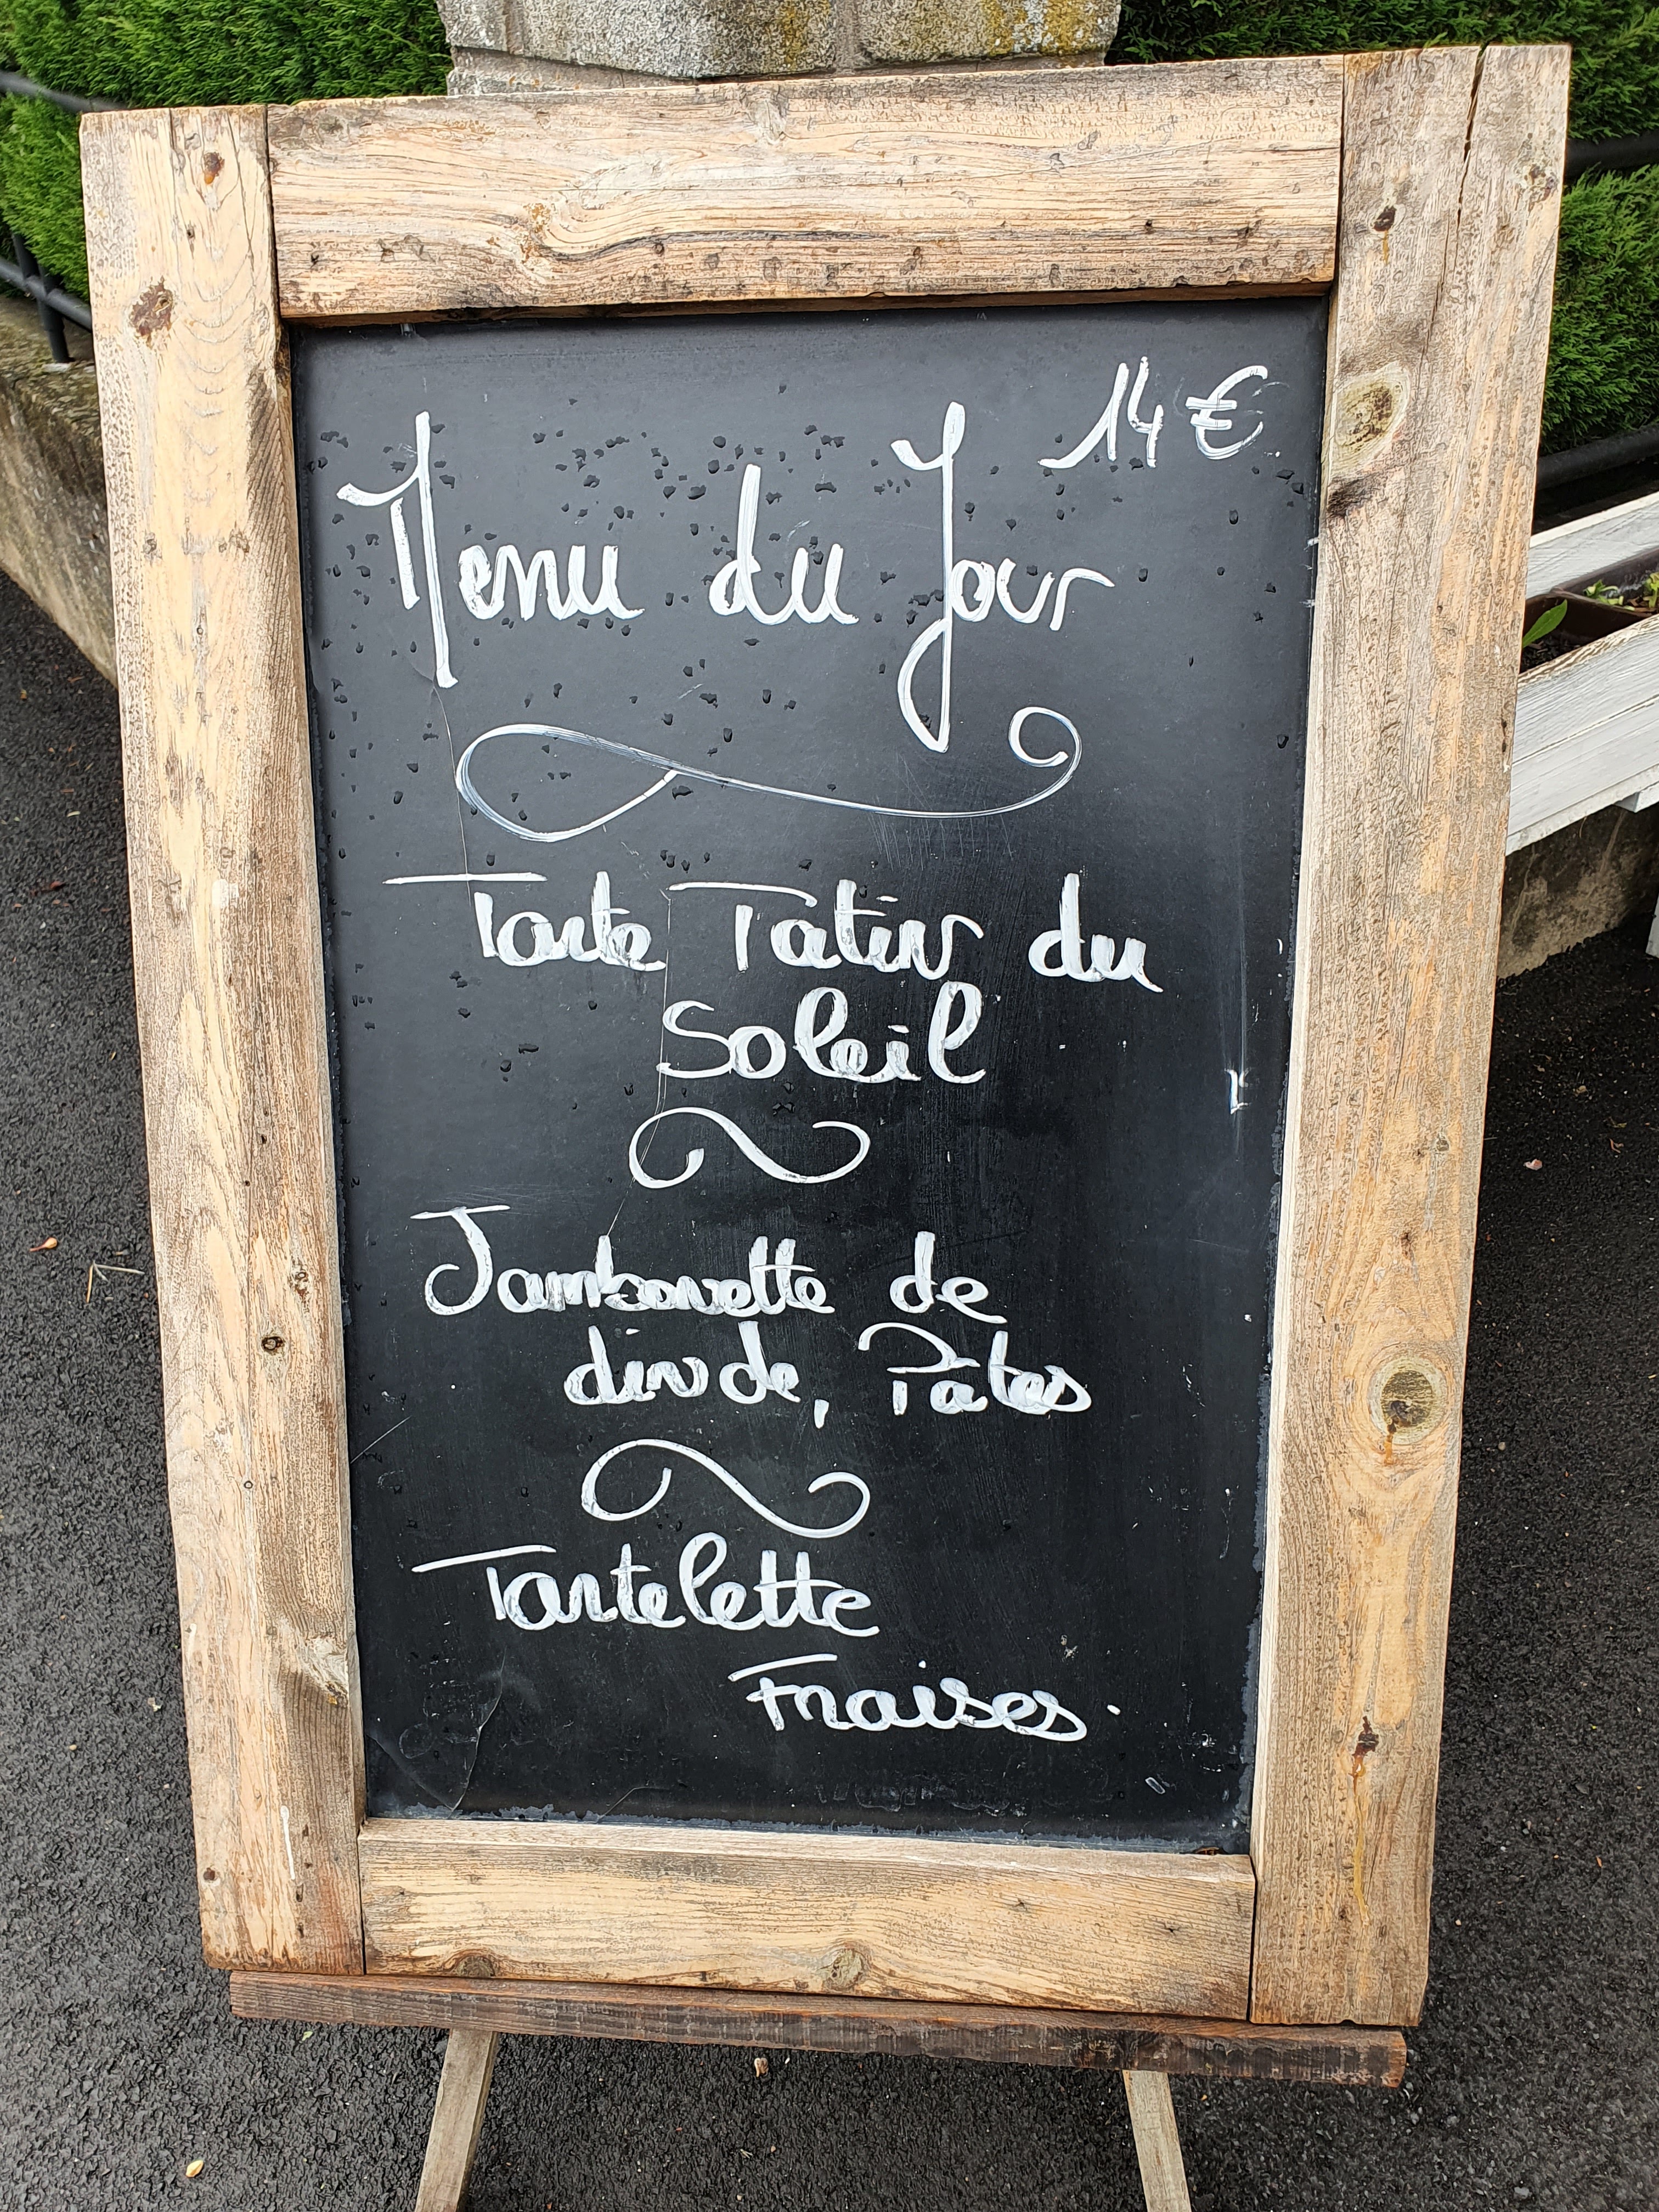 14 €
Menu du Jour
Tarte Tatin du
Soleil
Jambonette de
dinde, Pates
Tartelette
Fraises.